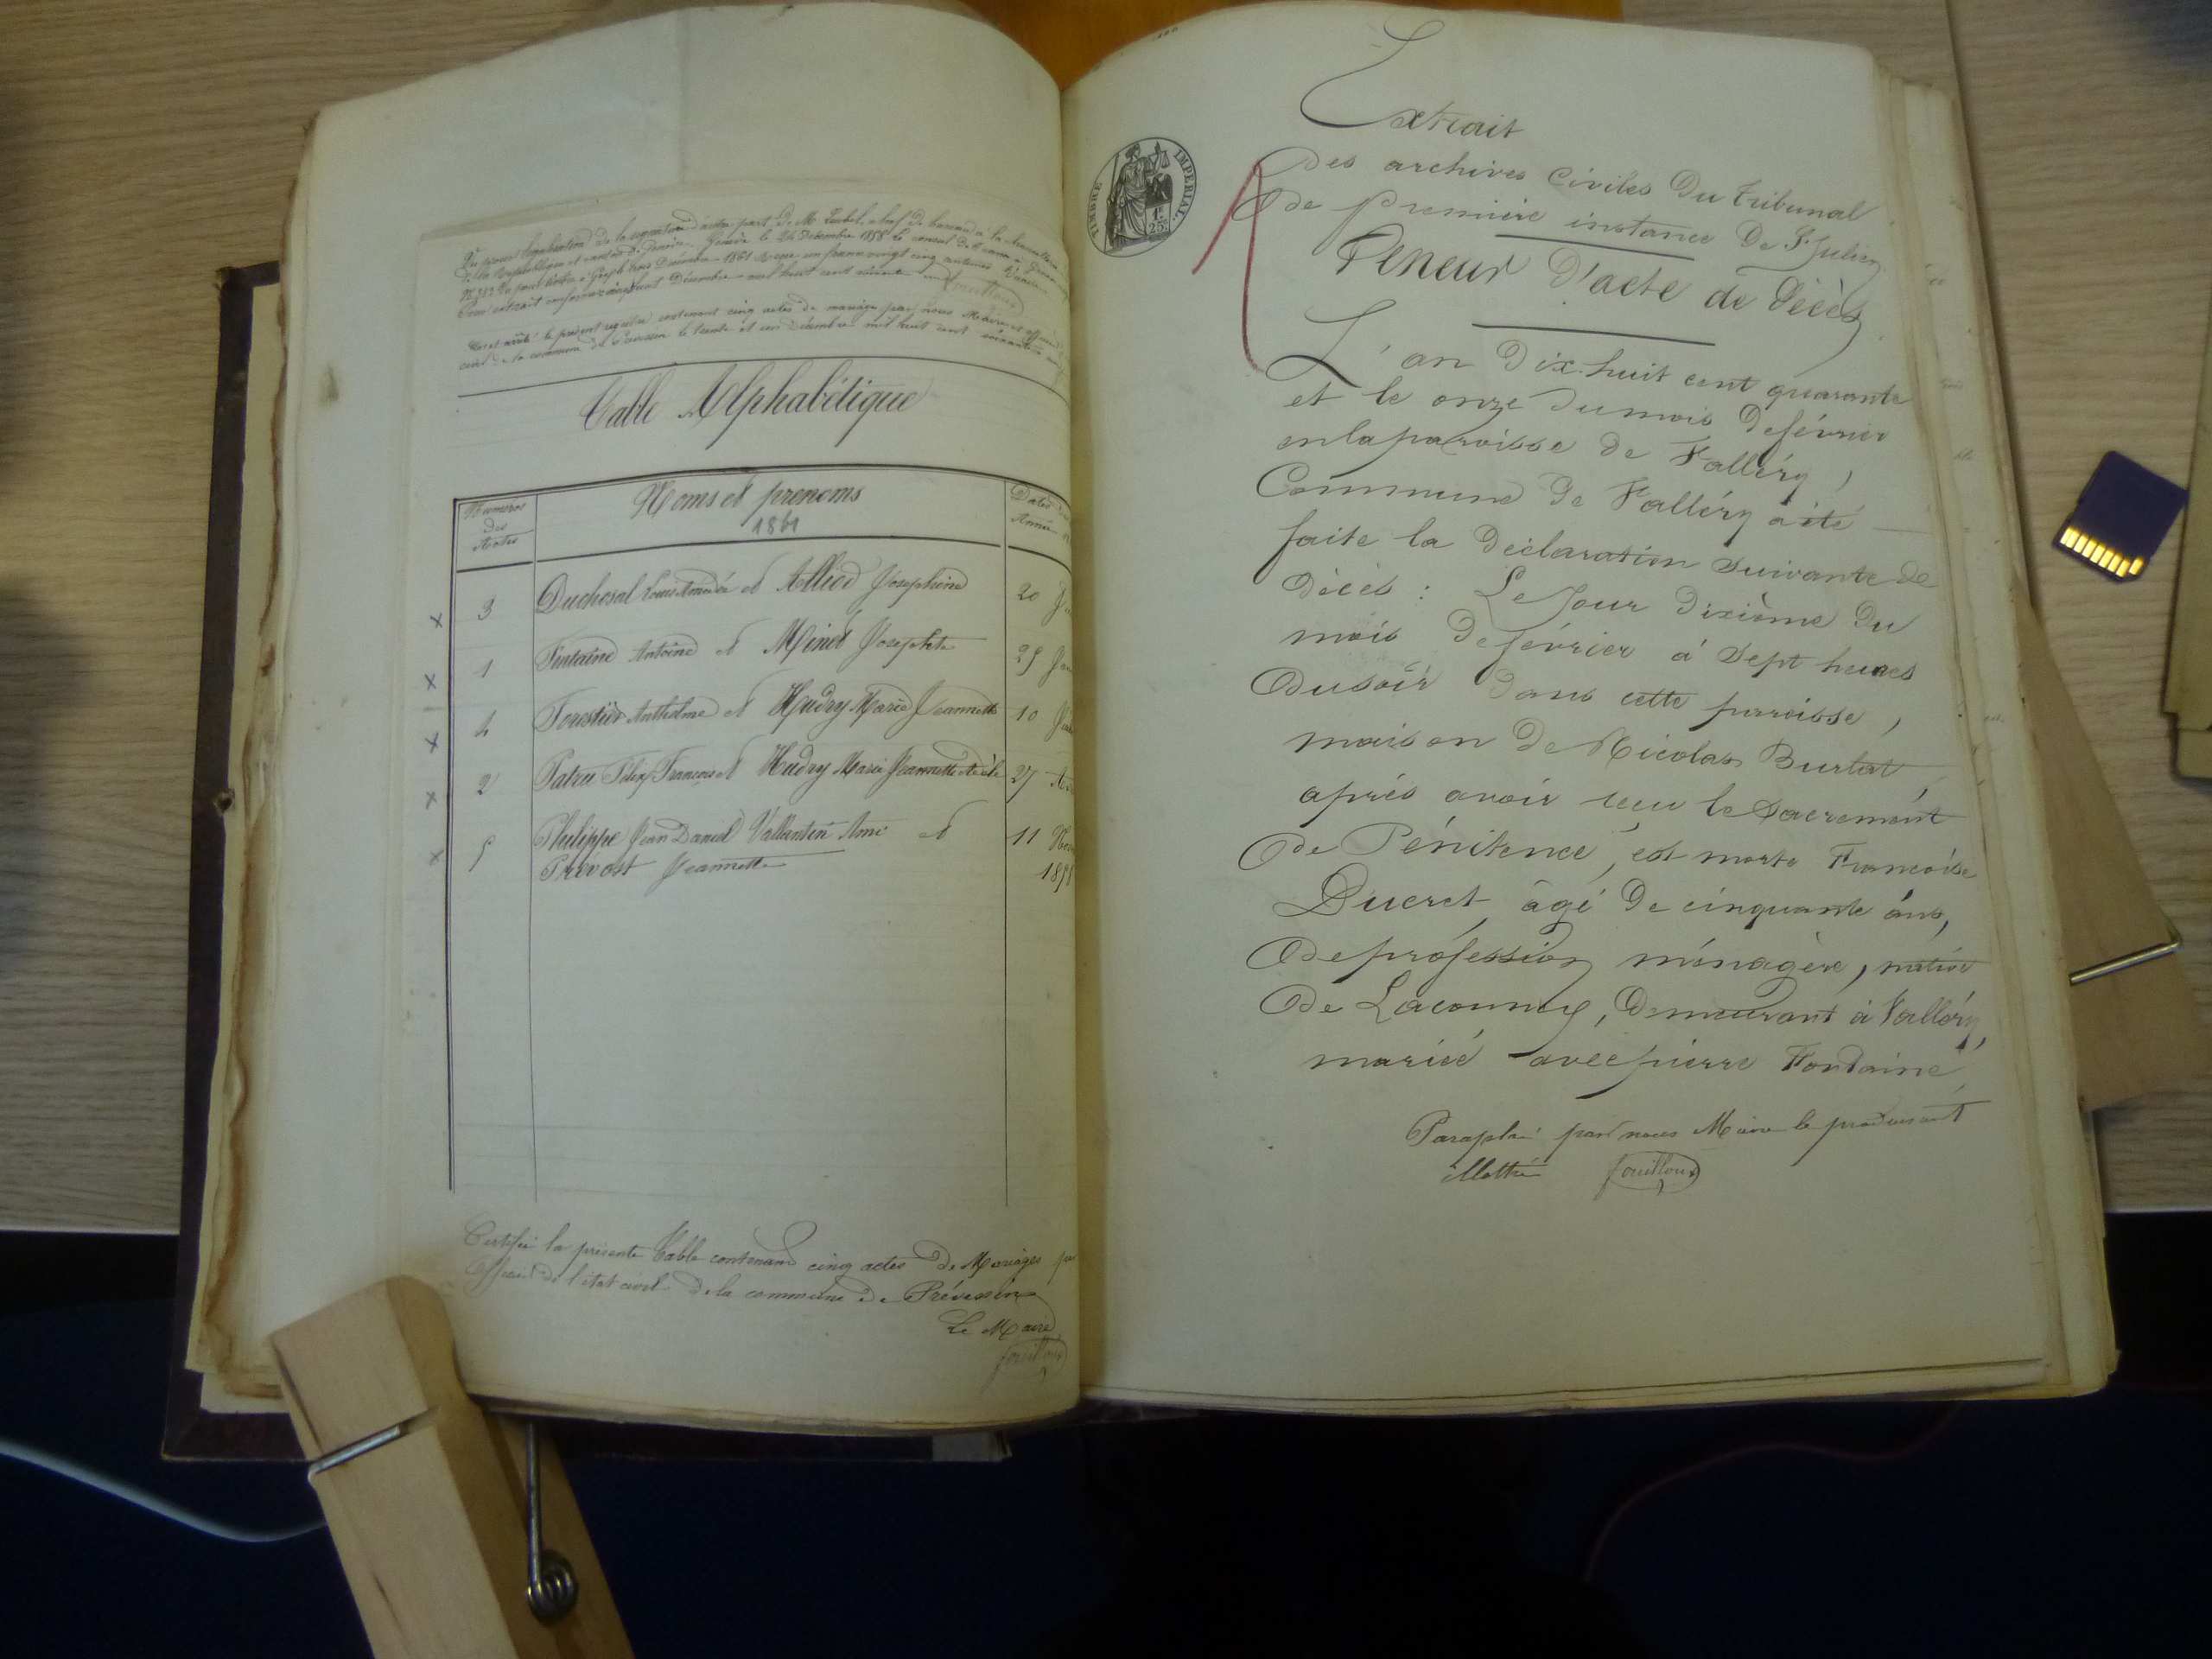 Vu pour légalisation de la signature d'autre part de M.
de la République et canton de Genève. Genève le 24 Décembre 1858 Le consul de France à
Décembre 1861 Reçu un franc vingt cinq centimes
mil huit cent soixante un
Clos et arrêté le présent registre contenant cinq actes de mariage par nous Maire et officier
civil de la commune de Prévessin le trente et un Décembre mil huit cent soixante un
Table Alphabétique
Numéros des Actes
Noms et prenoms
1861
Dates
Année
3 Duchosal Louis Amédée et Alliod Joséphine 20
1 Fontaine Antoine et Minet Josephte 25
4 Forestier Anthelme et Hudry Marie Jeannette 10
2 Patru Félix François et Hudry Marie Jeannette 27
5 Philippe Jean Daniel Vallentin Ami et 11
Prévost Jeannette 1858
Certifié la présente Table contenant cinq actes de Mariages
officier de l'état civil de la commune de Prévessin
Le Maire
fouilloux
TIMBRE IMPERIAL.
1F
25C
Extrait
des archives Civiles Du Tribunal
de première instance De St Julien
Teneur D'acte de Décès
L'an Dix-huit cent quarante
et le onze du mois de février
en la paroisse de Falléry,
Commune de Falléry a été
faite la Déclaration suivante de
Décès : Le Jour Dixième Du
mois De février à Sept heures
Du soir Dans cette parroisse,
maison De Nicolas Burlat,
après avoir reçu le Sacrement
De Pénitence, est morte Françoise
Ducret, âgé De cinquante ans,
De profession ménagère, native
De Laconnay, Demeurant à Falléry,
mariée avec pierre Fontaine
Paraphé par nous Maire le produisant
illettré fouilloux